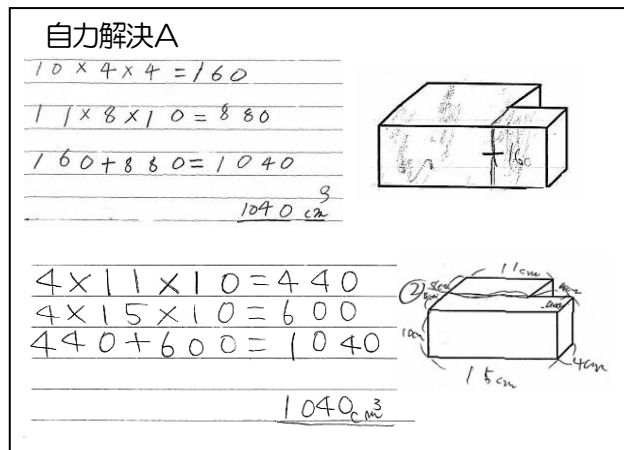 自力解決A
10×4×4=160
11×8×10=880
160+880=1040
1040 cm³
160
4×11×10=440
4×15×10=600
440+600=1040
1040cm³
②
11cm
4cm
10cm
15cm
4cm